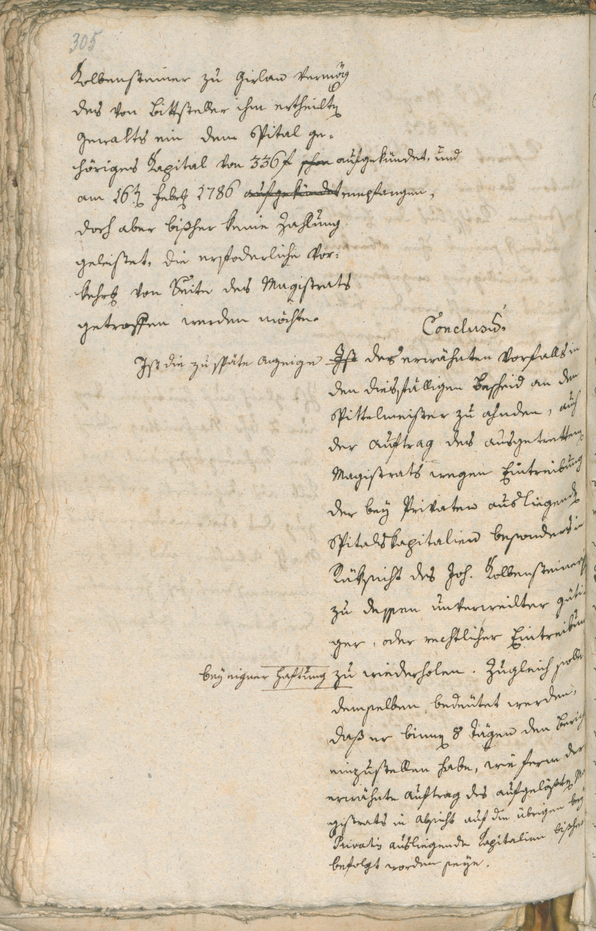 305
Kolbensteiner zu Girlan vermög
des von Bittsteller ihm ertheilten
Gewalts ein dem Spital ge-
höriges Kapital von 336 f schon aufgekündet, und
am 16ten Febr 1786 aufgekündet empfangen,
doch aber bißher keine Zahlung
geleistet, die erfoderliche Vor-
kehr von Seite des Magistrats
getroffen werden möchte.
Conclusū.
Ist die zu späte Anzeige Ist des erwähnten Vorfalls in
den diesfälligen Bescheid an den
Spittelmeister zu ahnden, auch
der Auftrag des ausgetrettenen
Magistrats wegen Eintreibung
der bey Privaten ausliegenden
Spitalskapitalien besonders in
Rüksicht des Joh. Kolbensteiners
zu dessen unverweilter güti-
ger, oder rechtlicher Eintreibung
bey eigner Haftung zu wiederholen. Zugleich solle
demselben bedeutet werden,
daß er binnen 8 Tägen den Bericht
einzustellen habe, wie fern der
erwähnte Auftrag des aufgelösten Ma-
gistrats in Absicht auf die übrigen bey
Privatis ausliegende Kapitalien bißher
befolgt worden seye.